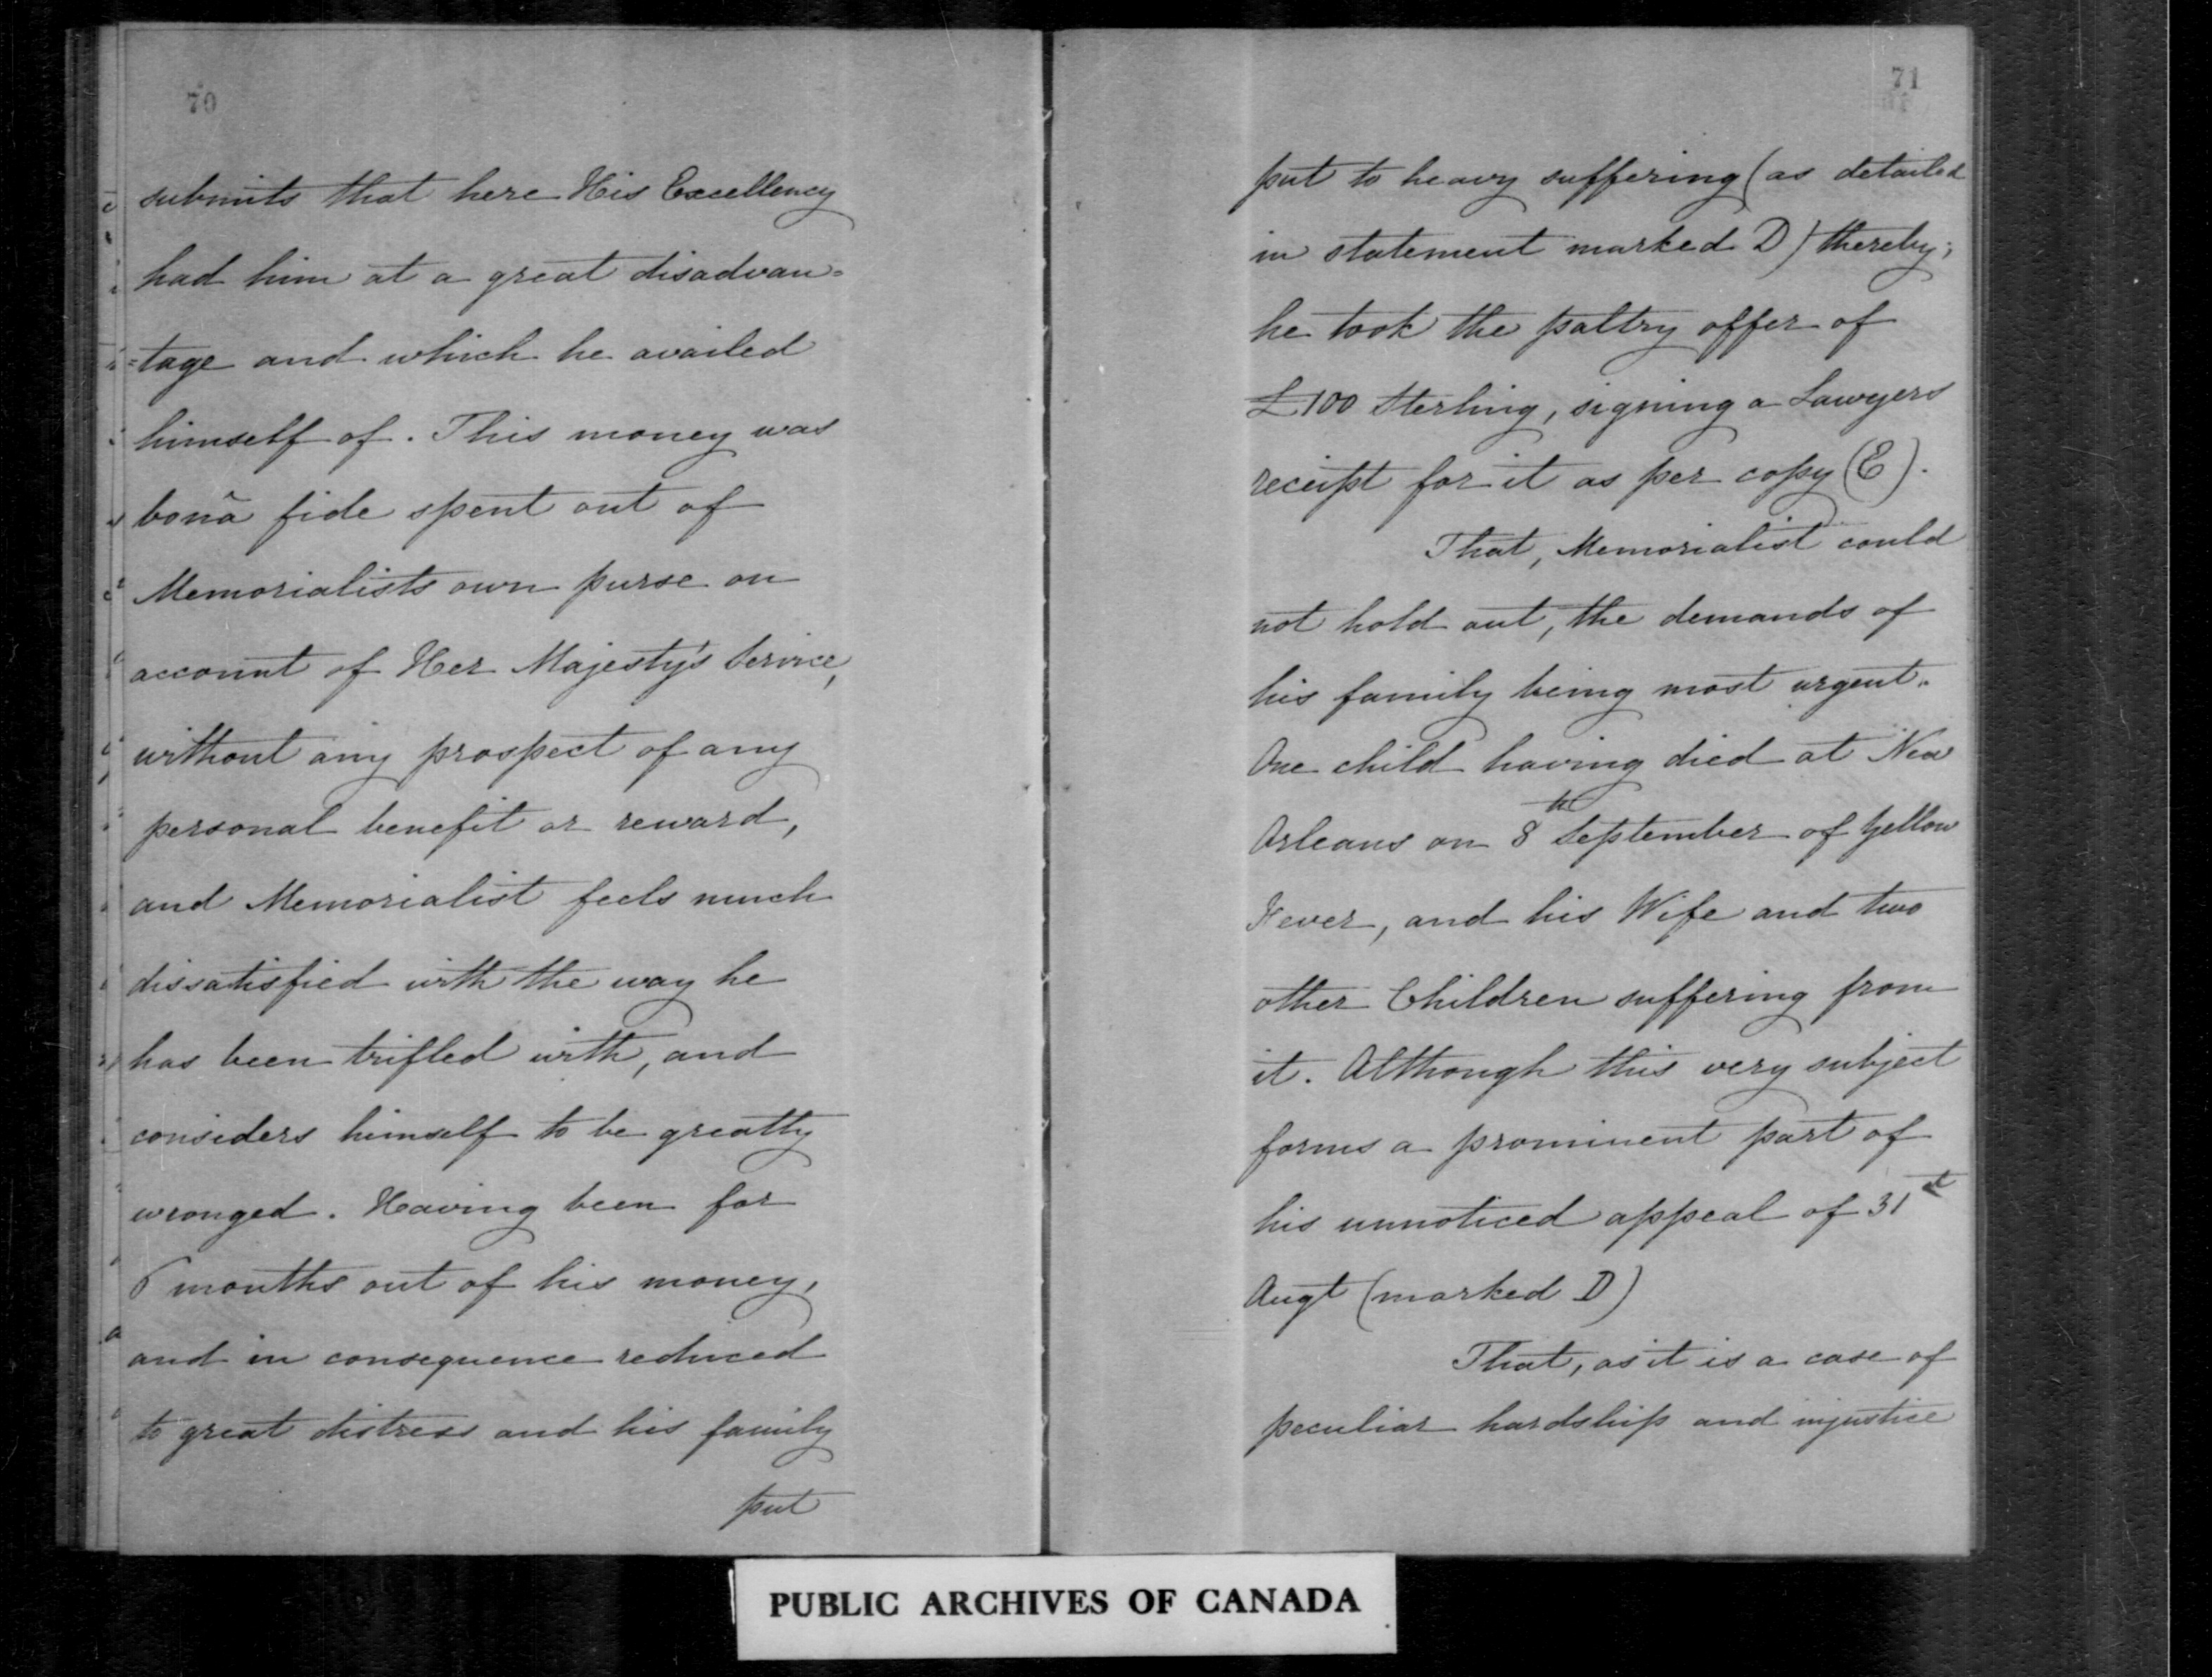 70
submits that here His Excellency
had him at a great disadvan=
=tage and which he availed
himself of. This money was
bonâ fide spent out of
Memorialists own purse on
account of Her Majesty's Service,
without any prospect of any
personal benefit or reward,
and Memorialist feels much
dissatisfied with the way he
has been trifled with, and
considers himself to be greatly
wronged. Having been for
6 months out of his money,
and in consequence reduced
to great distress and his family
put
71
put to heavy suffering (as detailed
in statement marked D) thereby;
he took the paltry offer of
£100 Sterling, signing a Lawyers
receipt for it as per copy (E).
That, Memorialist could
not hold out, the demands of
his family being most urgent.
One child having died at New
Orleans on 8th September of Yellow
Fever, and his Wife and two
other Children suffering from
it. Although this very subject
forms a prominent part of
his unnoticed appeal of 31st
Augt (marked D)
That, as it is a case of
peculiar hardship and injustice
PUBLIC ARCHIVES OF CANADA